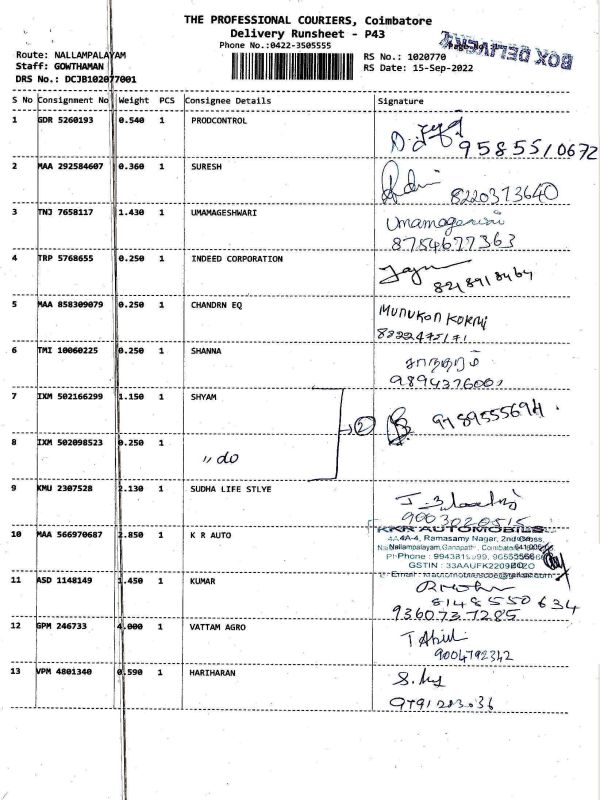 THE PROFESSIONAL COURIERS, Coimbatore
Delivery Runsheet - P43
Phone No.:0422-3505555
BOX DELIVERY
Route: NALLAMPALAYAM
Staff: GOWTHAMAN
DRS No.: DCJB102077001
RS No.: 1020770
RS Date: 15-Sep-2022
S No Consignment No Weight PCS Consignee Details Signature
1 GDR 5260193 0.540 1 PRODCONTROL
9585510672
2 MAA 292584607 0.360 1 SURESH
8220373640
3 TNJ 7658117 1.430 1 UMAMAGESHWARI
8754677363
4 TRP 5768655 0.250 1 INDEED CORPORATION
8218918464
5 MAA 858309079 0.250 1 CHANDRN EQ
6 TMI 10060225 0.250 1 SHANNA
7 IXM 502166299 1.150 1 SHYAM
② 9789555694
8 IXM 502098523 0.250 1 〃 do
9 KMU 2307528 2.130 1 SUDHA LIFE STLYE
9003020515
10 MAA 566970687 2.850 1 K R AUTO
KKR AUTOMOBILES
4A-4, Ramasamy Nagar, 2nd Cross,
Nallampalayam, Ganapathi, Coimbatore
GSTIN : 33AAUFK2209
11 ASD 1148149 1.450 1 KUMAR
8148550634
9360737285
12 GPM 246733 4.000 1 VATTAM AGRO
9004792342
13 VPM 4801340 0.590 1 HARIHARAN
9791283036